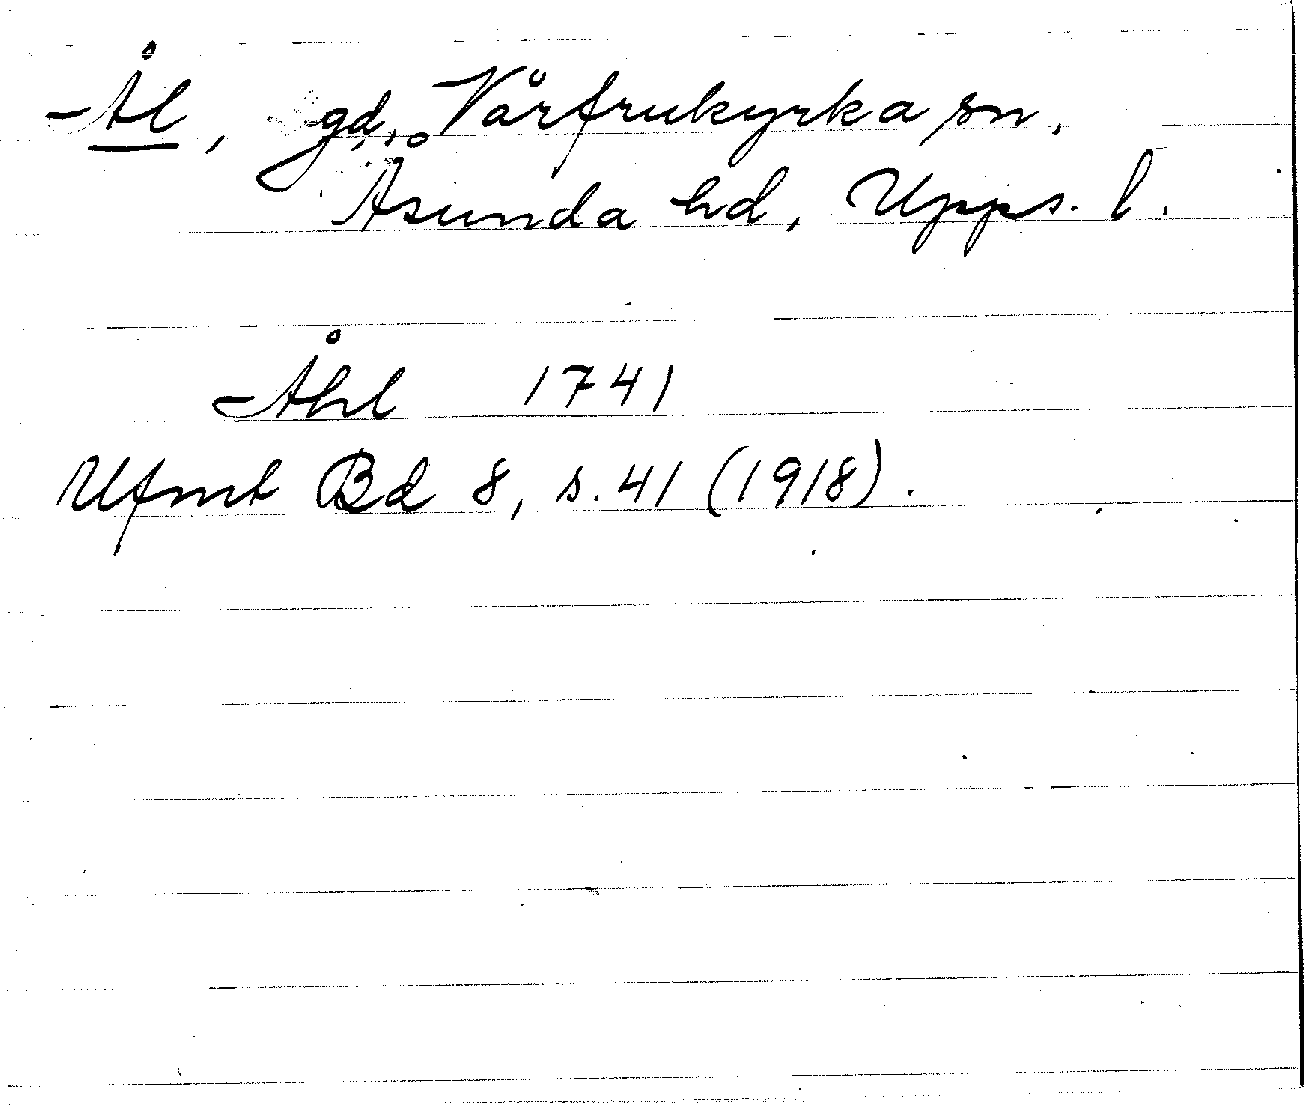 Ål, gd, Vårfrukyrka sn,
Åsunda hd, Upps. l.
Åhl 1741
Ufmt Bd 8, s. 41 (1918).